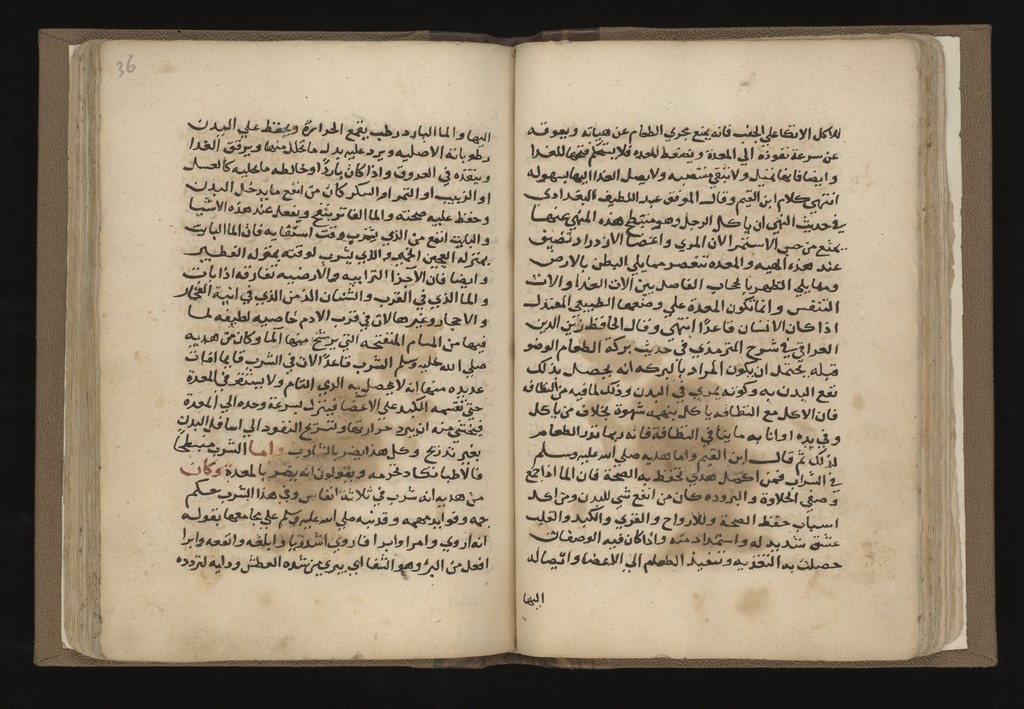 للاكل الاتكا علي الجنب فانه يمنع مجري الطعام عن هياته ويعوقه
عن سرعة نفوذه الي المعدة ويضغط المعده فلا يستحكم فتحها للغدا
وايضا فانها تميل ولا تبقي منتصبه ولا يصل الغدا اليها بسهوله
انتهي كلام ابن القيم وقال الموفق عبد اللطيف البغدادي
في حديث النهي ان ياكل الرجل وهو منبطح هذه المنهي عنها
يمنع من حسن الاستمرا لان المري واعضا الازدراد تضيق
عند هذه الهيه والمعده تنعصر مما يلي البطن بالارض
ومما يلي الظهر بالحجاب الفاصل بين الات الغدا والات
التنفس وانما تكون المعدة علي وضعها الطبيعي المعتدل
اذا كان الانسان قاعدا انتهي وقال الحافظ زين الدين
العراقي في شرح الترمذي في حديث بركة الطعام الوضو
قبله يحتمل ان يكون المراد بالبركه انه يحصل بذلك
نفع البدن به وكونه يمري في البدن وذلك لما فيه من النظافه
فان الاكل مع النظافه ياكل بنهمه شهوة بخلاف من ياكل
وفي يده او انابه ما ينافي النظافة فانه ربما تقذر الطعام
لذلك ثم قال ابن القيم واما هديه صلي الله عليه وسلم
في الشراب فمن اكمل هدي تحفظ به الصحة فان الما اذا جمع
وصفي الحلاوة والبروده كان من انفع شي للبدن ومن اكد
اسباب حفظ الصحة وللارواح والقوي والكبد والقلب
عشق شديد له واستمداد منه واذا كان فيه الوصفان
حصلت به التغذيه وتنفيذ الطعام الي الاعضا وايصاله
اليها
36
اليها والما البارد رطب يقمع الحرارة ويحفظ علي البدن
رطوباته الاصليه ويرد عليه بدل ما تحلل منها ويرقق الغدا
وينفذه في العروق واذا كان باردا وخالطه ما يحليه كالعسل
او الزبيب او التمر او السكر كان من انفع ما يدخل البدن
وحفظ عليه صحته والما الفاتر ينفخ ويفعل ضد هذه الاشيا
والبايت انفع من الذي يشرب وقت استقايه فان الما البايت
بمنزله العجين الخمير والذي يشرب لوقته بمنزله الفطير
وايضا فان الاجزا الترابيه والارضيه تفارقه اذا بات
والما الذي في القرب والشنان الذ من الذي في انية الفخار
والاحجار وغيرها لان في قرب الادم خاصيه لطيفه لما
فيها من المسام المنفتحه التي يرشح منها الما وكان من هديه
صلي الله عليه وسلم الشرب قاعدا لان في الشرب قايما افات
عديده منها انه لا يحصل به الري التام ولا يستقر في المعدة
حتي تقسمه الكبد علي الاعضا فينزل بسرعة وحده الي المعدة
فيخشي منه ان يبرد حرارتها وتسرع النفود الي اسافل البدن
بغير تدريج وكل هذا يضر بالشارب واما الشرب منبطحا
فالاطبا تكاد تحرمه ويقولون انه يضر بالمعدة وكان
من هديه انه شرب في ثلاثة انفاس وفي هذا الشرب حكم
جمه وفوايد مهمه وقد نبه صلي الله عليه وسلم علي مجامعها بقوله
انه اروي وامرا وابرا فاروي اشد ريا وابلغه وانفعه وابرا
افعل من البرؤ وهو الشفا اي يبري من شده العطش ودايه لتردده